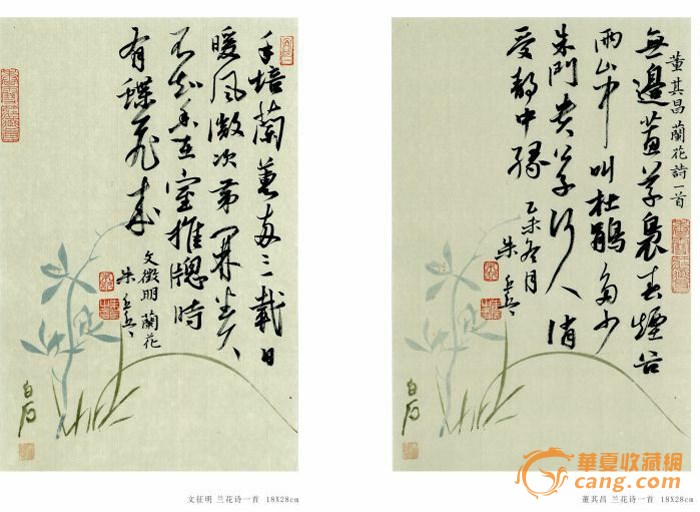 手培蘭蕙兩三載日
暖風微次第開坐久
不知香在室推牕時
有蝶飛來
文徵明蘭花
朱
白石
文征明 兰花诗一首 18X28cm
董其昌蘭花詩一首
無邊蕙草裊春煙谷
雨山中叫杜鵑多少
朱門貴公子何人消
受靜中緣
乙未冬月
朱
白石
董其昌 兰花诗一首 18X28cm
華夏收藏網
cang.com